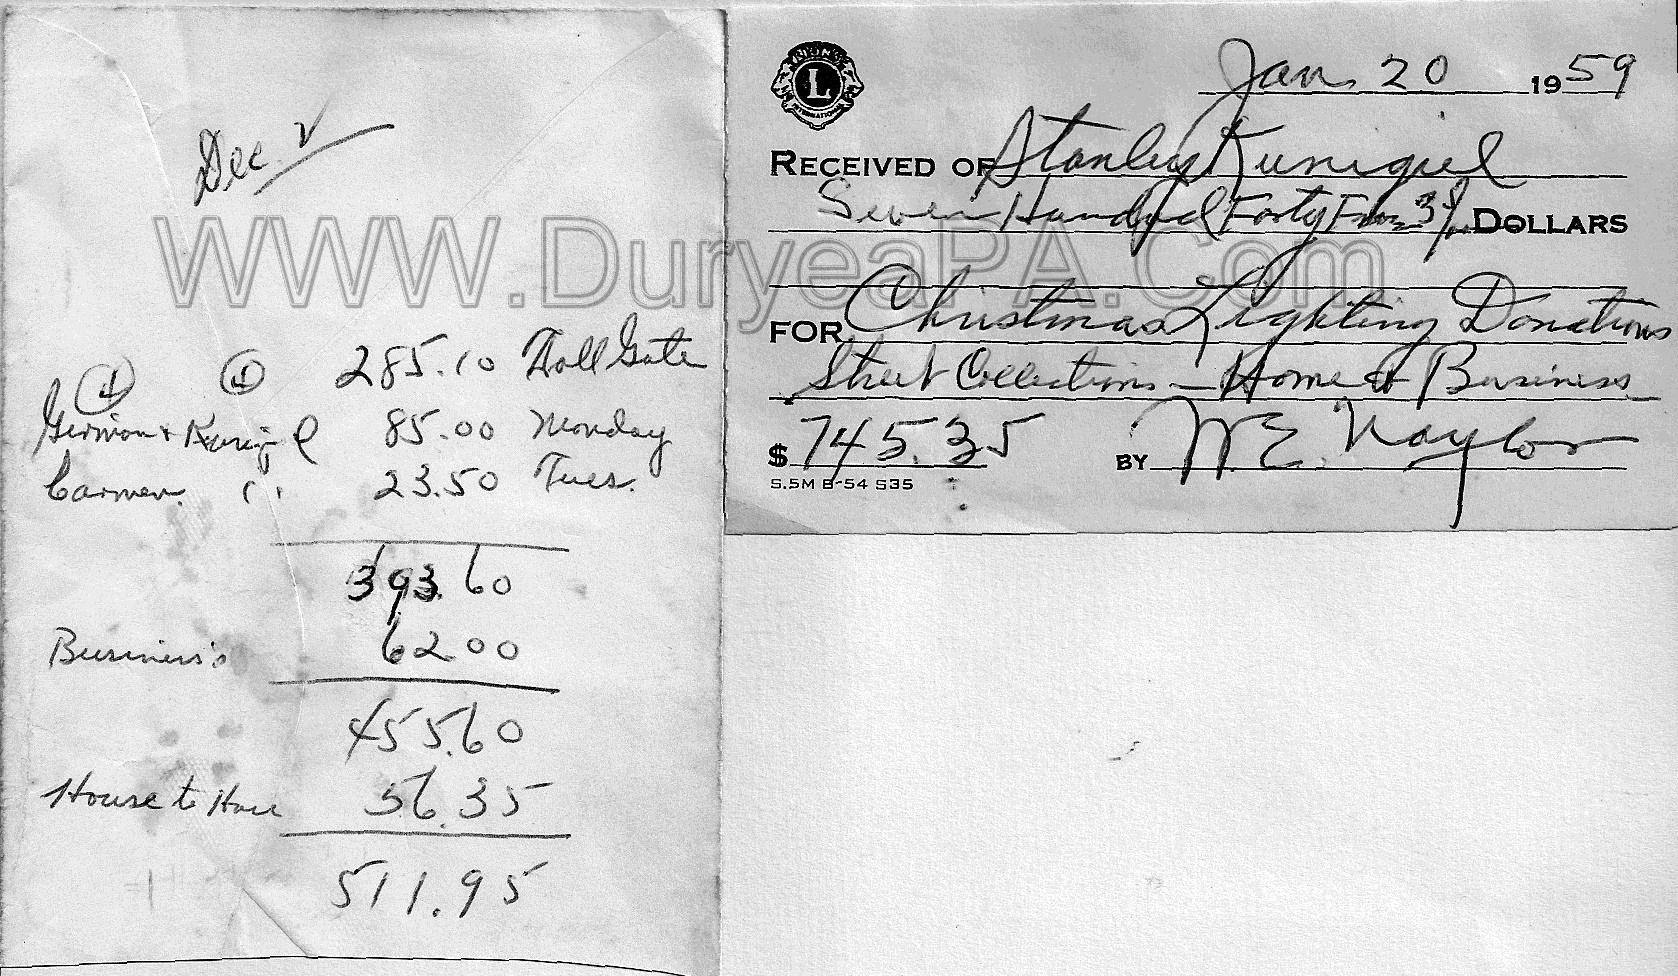 Dec 2
4 4 285.10 Toll Gate
German + Kunigiel 85.00 Monday
Carmen " 23.50 Tues.
393.60
Business's 62.00
455.60
House to House 56.35
511.95
LIONS
L
INTERNATIONAL
Jan. 20 1959
RECEIVED OF Stanley Kunigiel
Seven Hundred Forty Five 35/100 DOLLARS
FOR Christmas Lighting Donations
Street Collections - Home & Business
$ 745.35 BY W. E. Naylor
S.5M 8-54 S35
WWW.DuryeaPA.Com